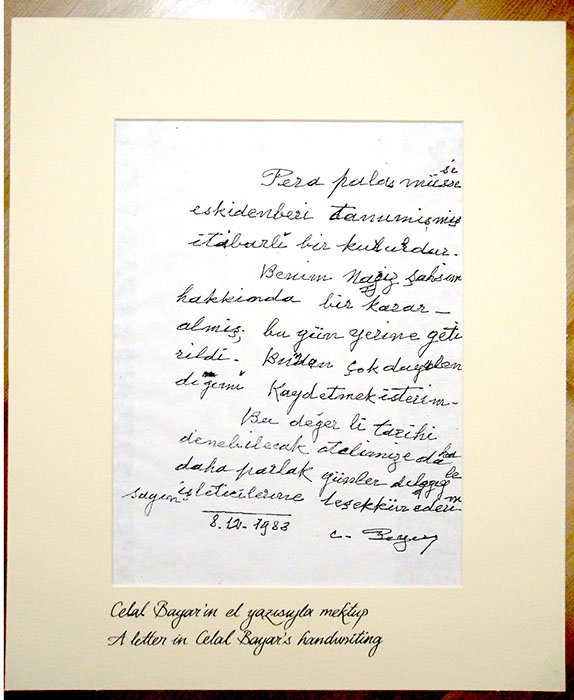 Pera palas müsse si
eskidenberi tanınmış
itibarlı bir kuruldur.
Benim naçiz şahsım
hakkında bir karar
almış, bu gün yerine geti
rildi. Bundan çok duygulan
dığımı Kaydetmek isterim.
Bu değer li tarihi
denebilecek otelimize da ha
daha parlak günler diler
sayın işleticilerine teşekkür ederim
8.12.1983
C. Bayar
Celal Bayar'ın el yazısıyla mektup
A letter in Celal Bayar's handwriting